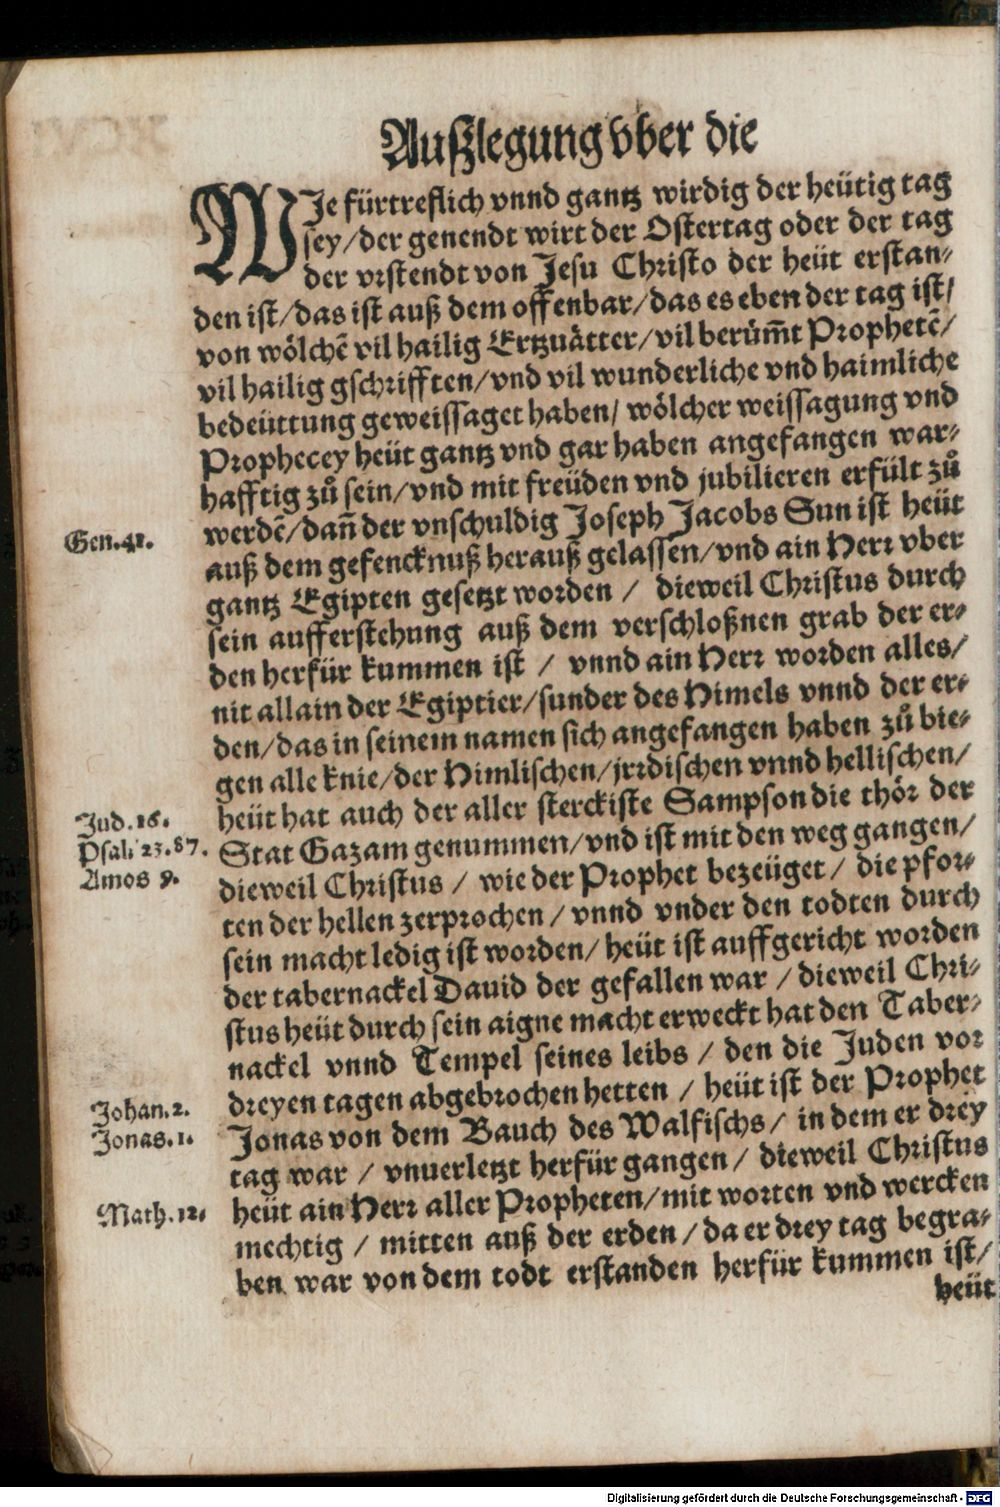 Außlegung vber die
WJe fürtreflich vnnd gantz wirdig der heütig tag
sey/der genendt wirt der Ostertag oder der tag
der vrstendt von Jesu Christo der heüt erstan-
den ist/das ist auß dem offenbar/das es eben der tag ist/
von wölchẽ vil hailig Ertzuåtter/vil berům̃t Prophetẽ/
vil hailig gschrifften/vnd vil wunderliche vnd haimliche
bedeüttung geweissaget haben/ wölcher weissagung vnd
Prophecey heüt gantz vnd gar haben angefangen war-
hafftig zů sein/vnd mit freüden vnd jubilieren erfült zů
werdẽ/dañ der vnschuldig Joseph Jacobs Sun ist heüt
Gen.41.
auß dem gefencknuß herauß gelassen/vnd ain Herr vber
gantz Egipten gesetzt worden / dieweil Christus durch
sein aufferstehung auß dem verschloßnen grab der er-
den herfür kummen ist / vnnd ain Herr worden alles/
nit allain der Egiptier/sunder des Himels vnnd der er-
den/das in seinem namen sich angefangen haben zů bie-
gen alle knie/der Himlischen/jrrdischen vnnd hellischen/
heüt hat auch der aller sterckiste Sampson die thör der
Jud.16.
Stat Gazam genummen/vnd ist mit den weg gangen/
Psal.23.87.
dieweil Christus / wie der Prophet bezeüget / die pfor-
Amos 9.
ten der hellen zerprochen / vnnd vnder den todten durch
sein macht ledig ist worden/ heüt ist auffgericht worden
der tabernackel Dauid der gefallen war / dieweil Chri-
stus heüt durch sein aigne macht erweckt hat den Taber-
nackel vnnd Tempel seines leibs / den die Juden vor
dreyen tagen abgebrochen hetten / heüt ist der Prophet
Johan.2.
Jonas von dem Bauch des Walfischs/ in dem er drey
Jonas.1.
tag war / vnuerletzt herfür gangen / dieweil Christus
heüt ain Herr aller Propheten/mit worten vnd wercken
Math.12.
mechtig / mitten auß der erden / da er drey tag begra-
ben war von dem todt erstanden herfür kummen ist/
heüt
Digitalisierung gefördert durch die Deutsche Forschungsgemeinschaft - DFG